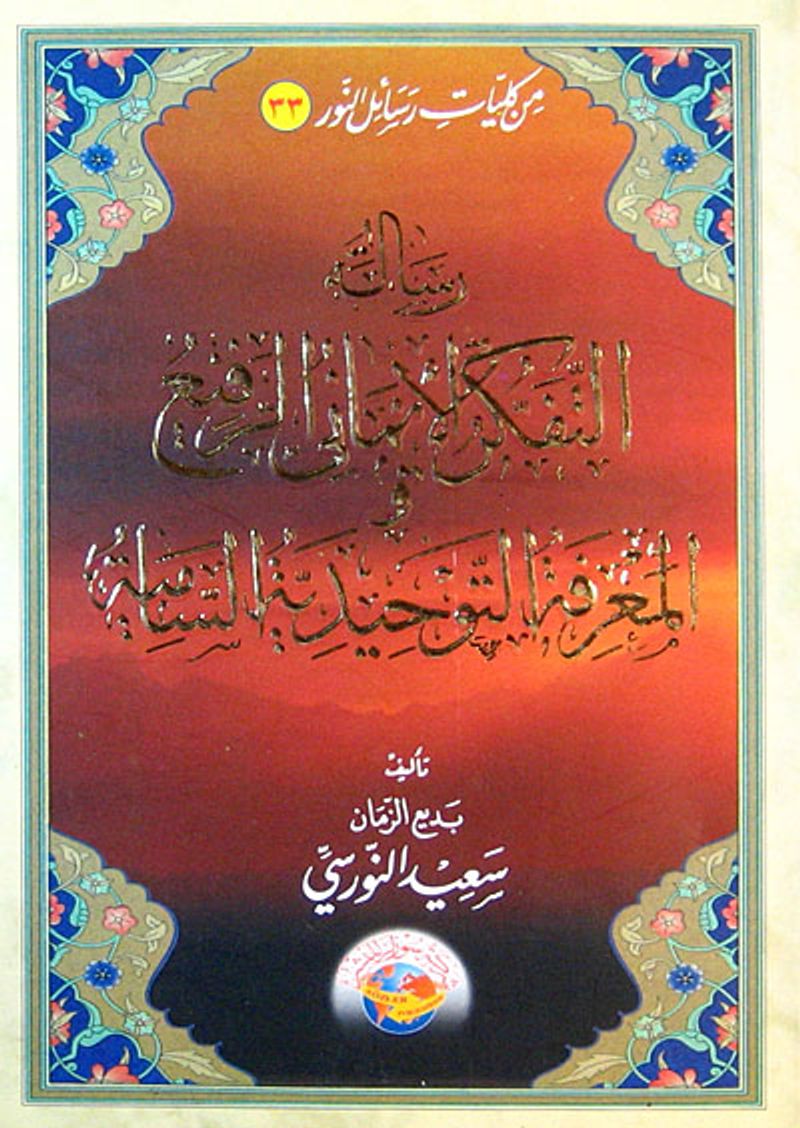 مِن كلِّيَّاتِ رَسَائِل النّور ٣٣
رسَالة
التَّفَكُّر الإيمَاني الرَّفيعُ
و
المَعْرِفَةُ التَّوْحِيْدِيَّةُ السَّامِيَةُ
تأليف
بَديع الزّمَان
سَعِيْد النّورسيّ